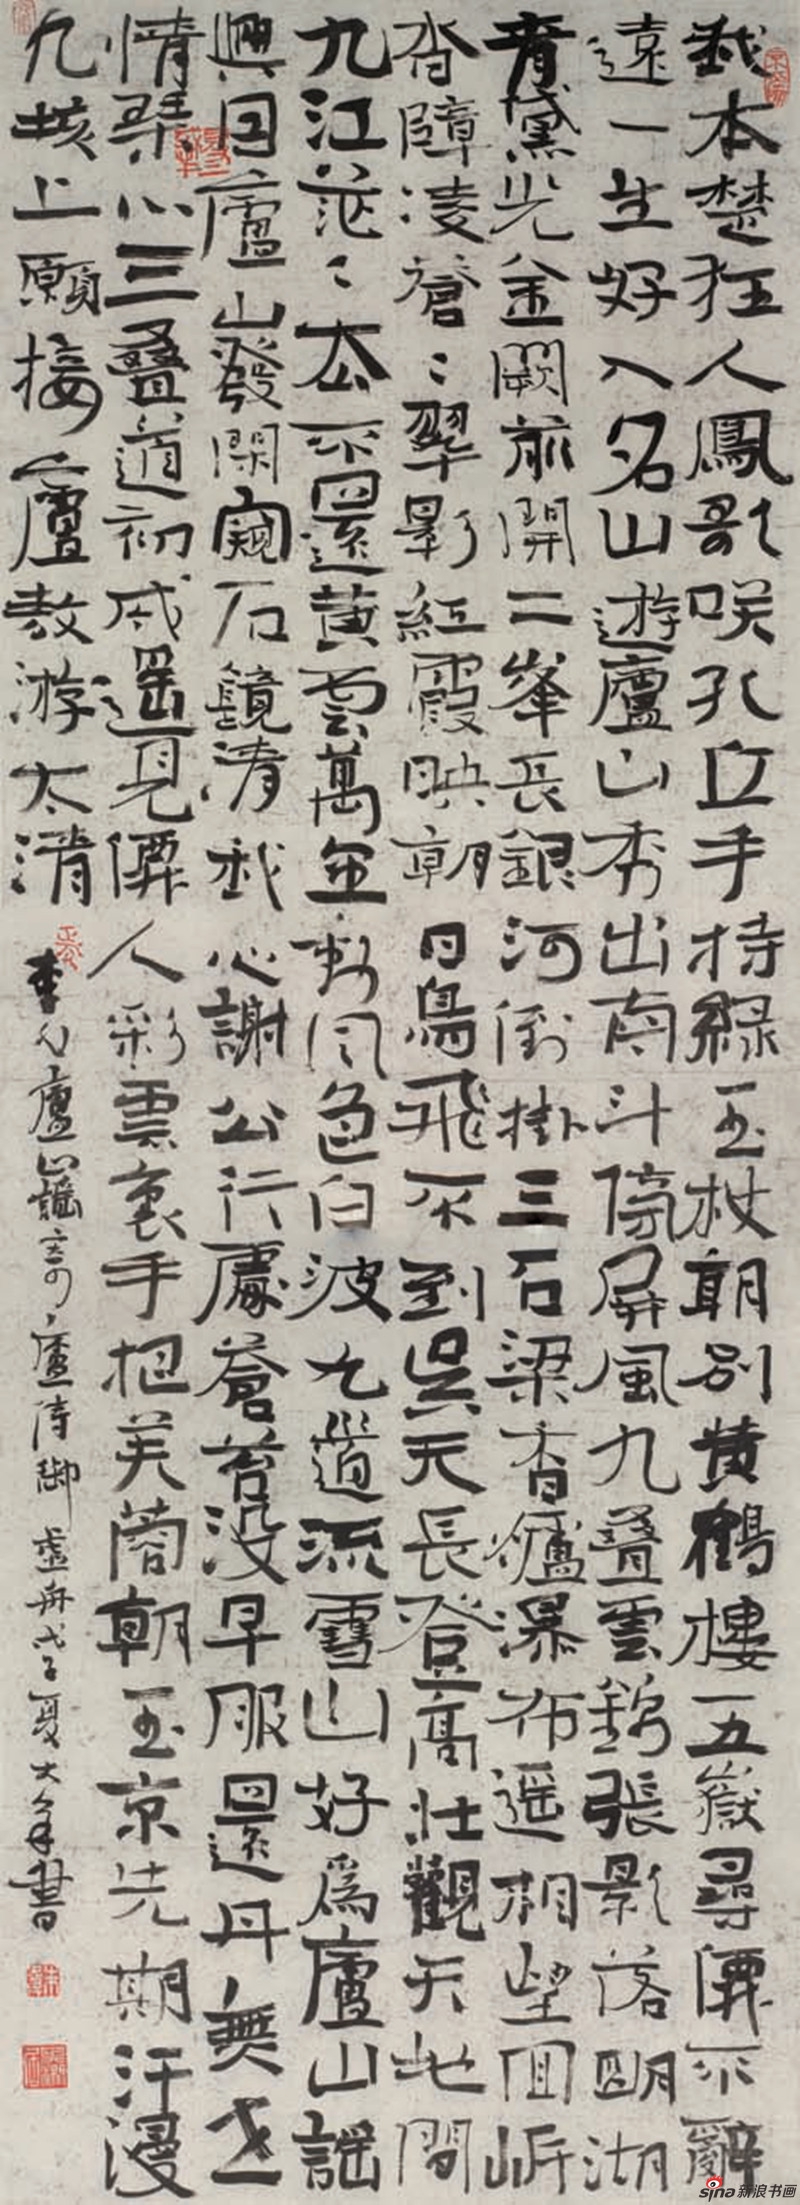 我本楚狂人鳳歌咲孔丘手持綠玉杖朝別黃鶴樓五嶽尋僊不辭
遠一生好入名山遊廬山秀出南斗傍屏風九疊雲錦張影落明湖
青黛光金闕前開二峯長銀河倒掛三石梁香爐瀑布遥相望回崖
沓障凌蒼〻翠影紅霞映朝日鳥飛不到吳天長登高壯觀天地間
九江茫〻去不還黃雲萬里動風色白波九道流雪山好爲廬山謡
興因廬山發閑窺石鏡清我心謝公行處蒼苔没早服還丹無世
情琴心三疊道初成遥見僊人彩雲裏手把芙蓉朝玉京先期汗漫
九垓上願接盧敖游太清
李白廬山謡寄盧侍御虚舟戊子夏大書
sina新浪书画